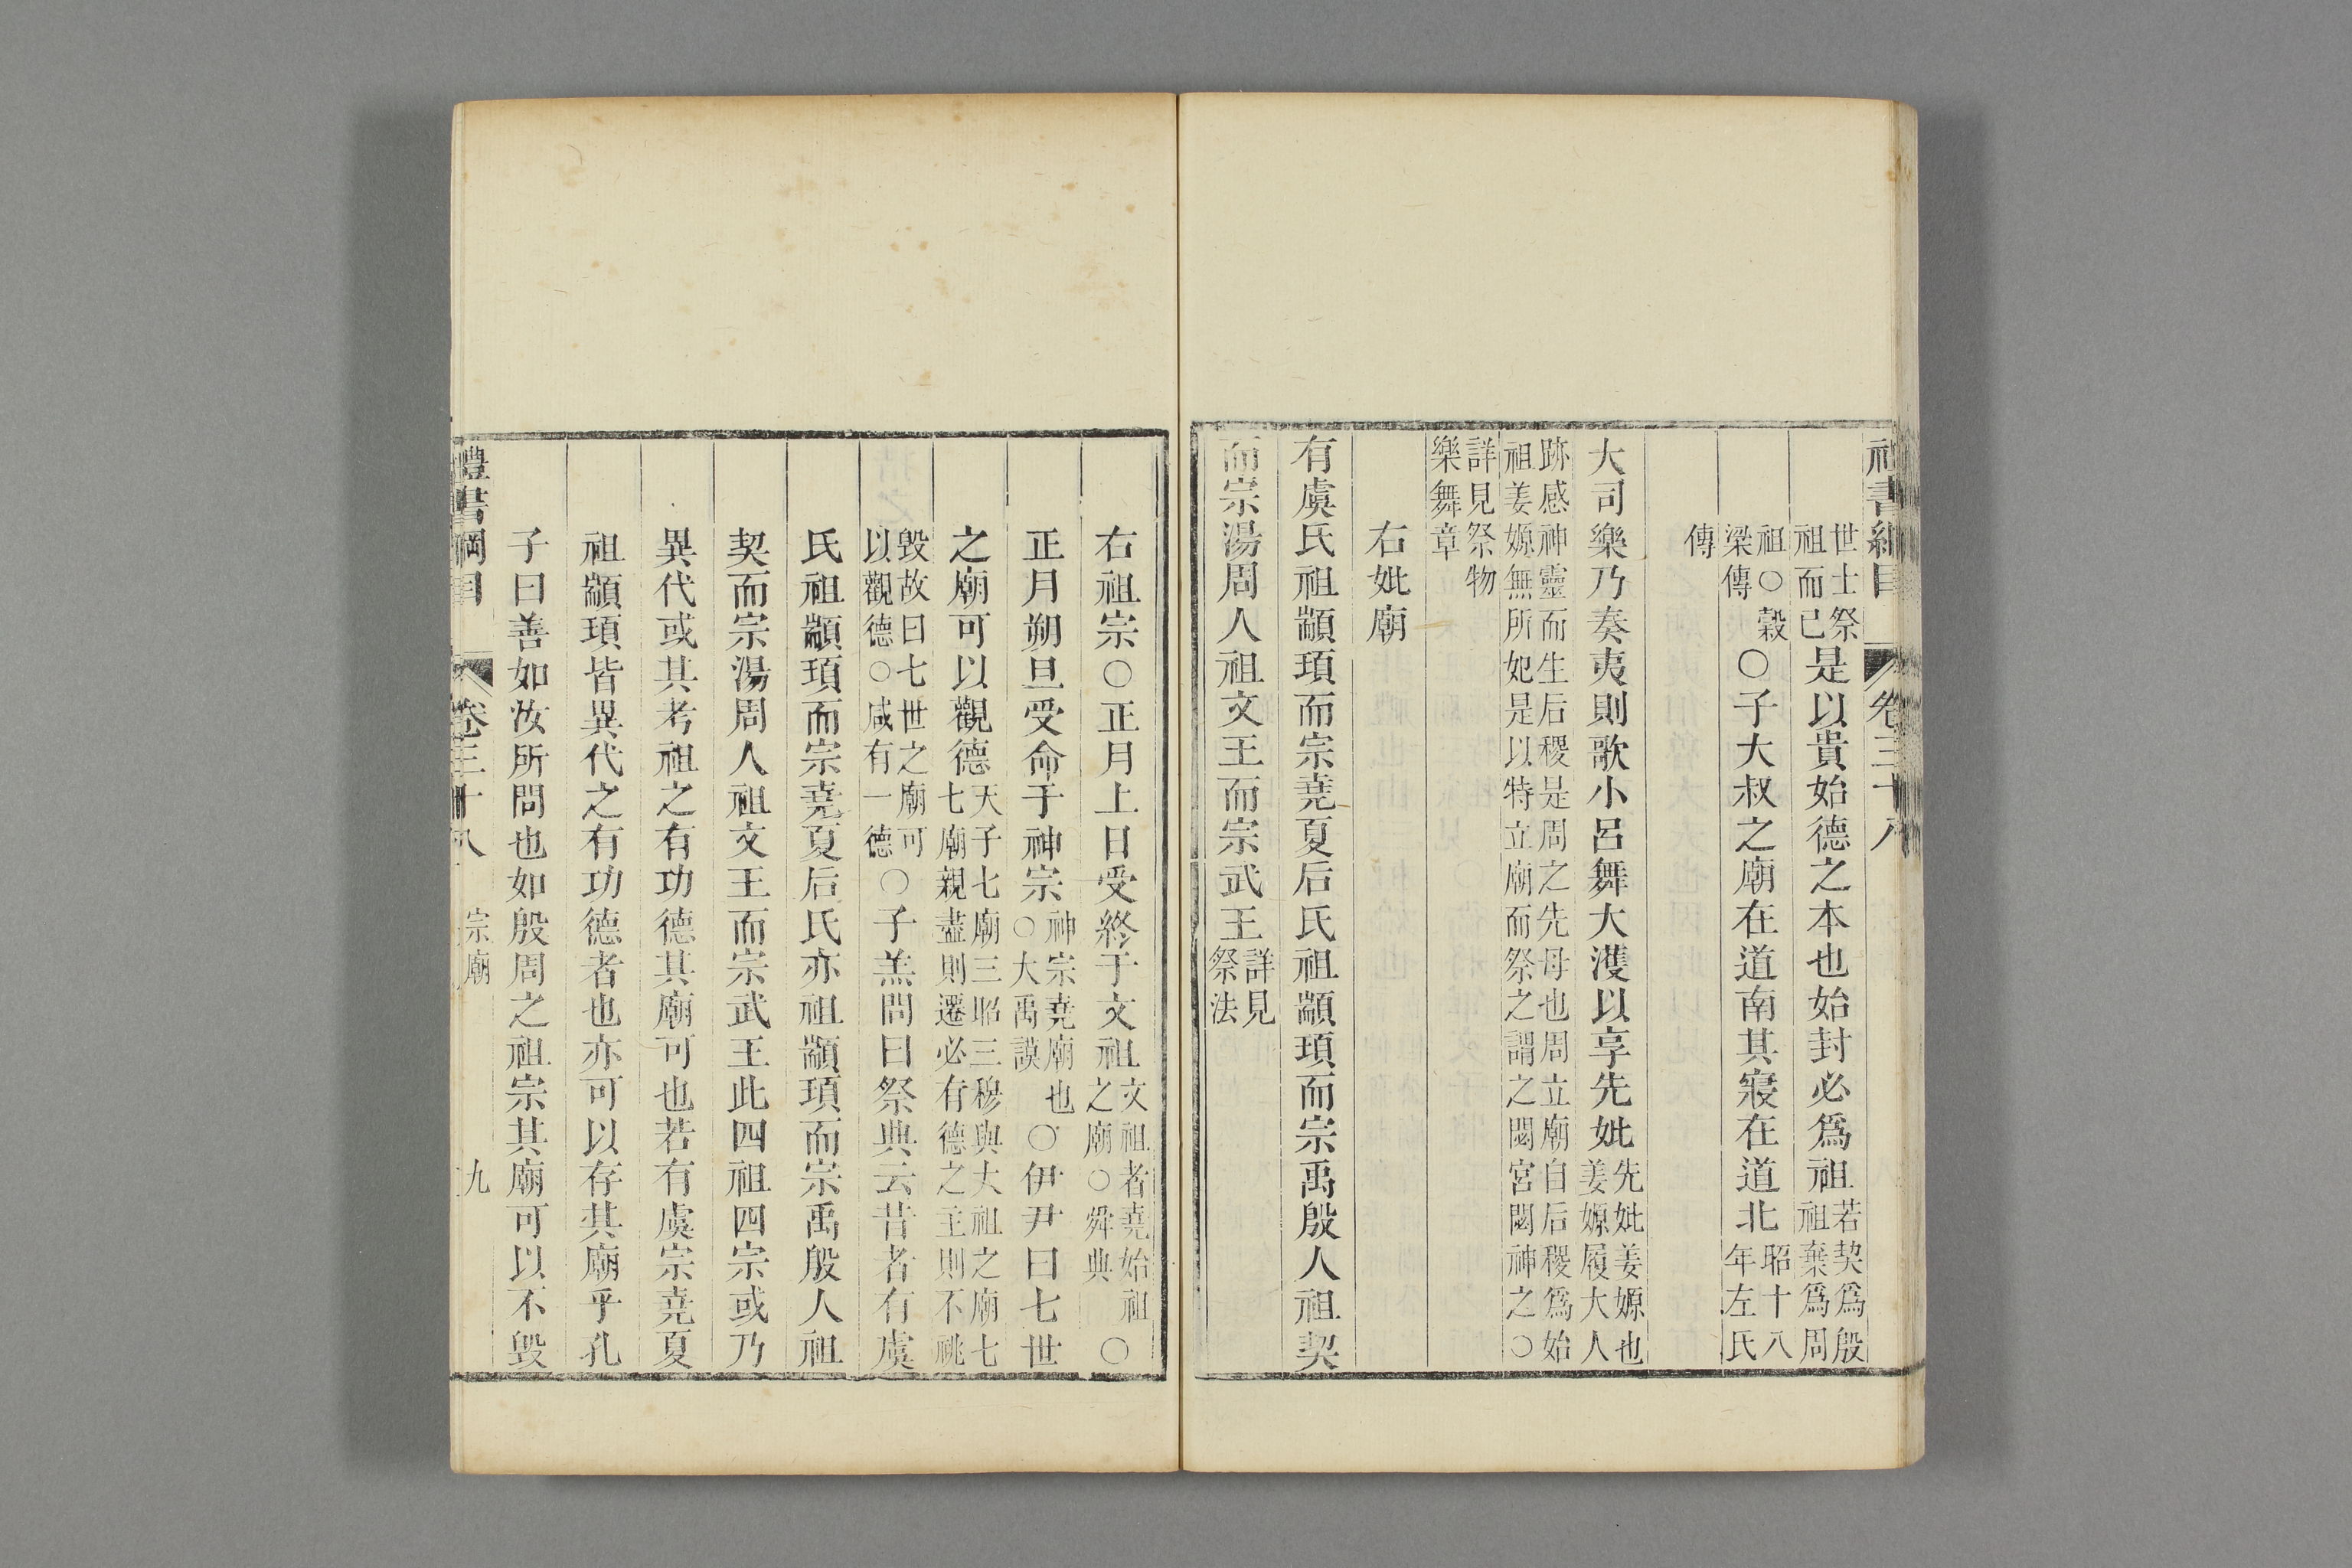 禮書綱目 卷三十八
世士祭祖而已是以貴始德之本也始封必爲祖若契爲殷祖棄爲周
祖○穀梁傳○子大叔之廟在道南其寢在道北昭十八年左氏
傳
大司樂乃奏夷則歌小呂舞大濩以享先妣先妣姜嫄也姜嫄履大人
跡感神靈而生后稷是周之先母也周立廟自后稷爲始祖姜嫄無所妃是以特立廟而祭之謂之閟宮閟神之○
詳見祭物樂舞章
右妣廟
有虞氏祖顓頊而宗堯夏后氏祖顓頊而宗禹殷人祖契
而宗湯周人祖文王而宗武王詳見祭法
右祖宗○正月上日受終于文祖文祖者堯始祖之廟○舜典○
正月朔旦受命于神宗神宗堯廟也○大禹謨○伊尹曰七世
之廟可以觀德天子七廟三昭三穆與大祖之廟七七廟親盡則遷必有德之主則不祧
毀故曰七世之廟可以觀德○咸有一德○子羔問曰祭典云昔者有虞
氏祖顓頊而宗堯夏后氏亦祖顓頊而宗禹殷人祖
契而宗湯周人祖文王而宗武王此四祖四宗或乃
異代或其考祖之有功德其廟可也若有虞宗堯夏
祖顓頊皆異代之有功德者也亦可以存其廟乎孔
子曰善如汝所問也如殷周之祖宗其廟可以不毀
禮書綱目 卷三十八 宗廟 九